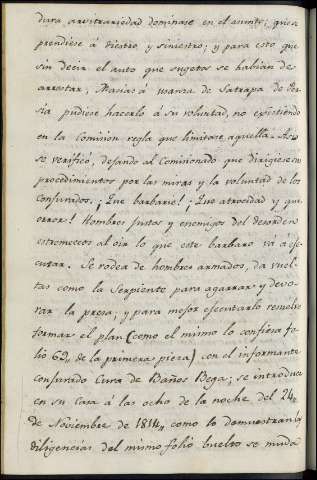 dura arvitrariedad dominase en el asunto; que se
prendiese á diestro, y siniestro; y para esto que
sin decir el auto que sugetos se habian de
arrestar, Macias á usanza de Satrapa de Per-
sia pudiese hacerlo á su voluntad, no existiendo
en la Comision regla que limitase aquella. Asi
se verificó, dejando al Comisionado que dirigiese sus
procedimientos por las miras y la voluntad de los
Conjurados. ¡Que barbarie! ¡Que atrocidad y que
error! Hombres justos y enemigos del desorden
estremeceos al oir lo que este barbaro vá á eje-
cutar. Se rodea de hombres armados, da vuel-
tas como la Serpiente para agarrar y devo-
rar la presa; y para mejor ejecutarlo remelve
formar el plan (como el mismo lo confiesa fo-
lio 62,, de la primera pieza) con el informante
conjurado Cura de Baños Bega; se introduce
en su Casa á las ocho de la noche del 24,,
de Noviembre de 1814,, como lo demuestran las
diligencias del mismo folio buelto se muda